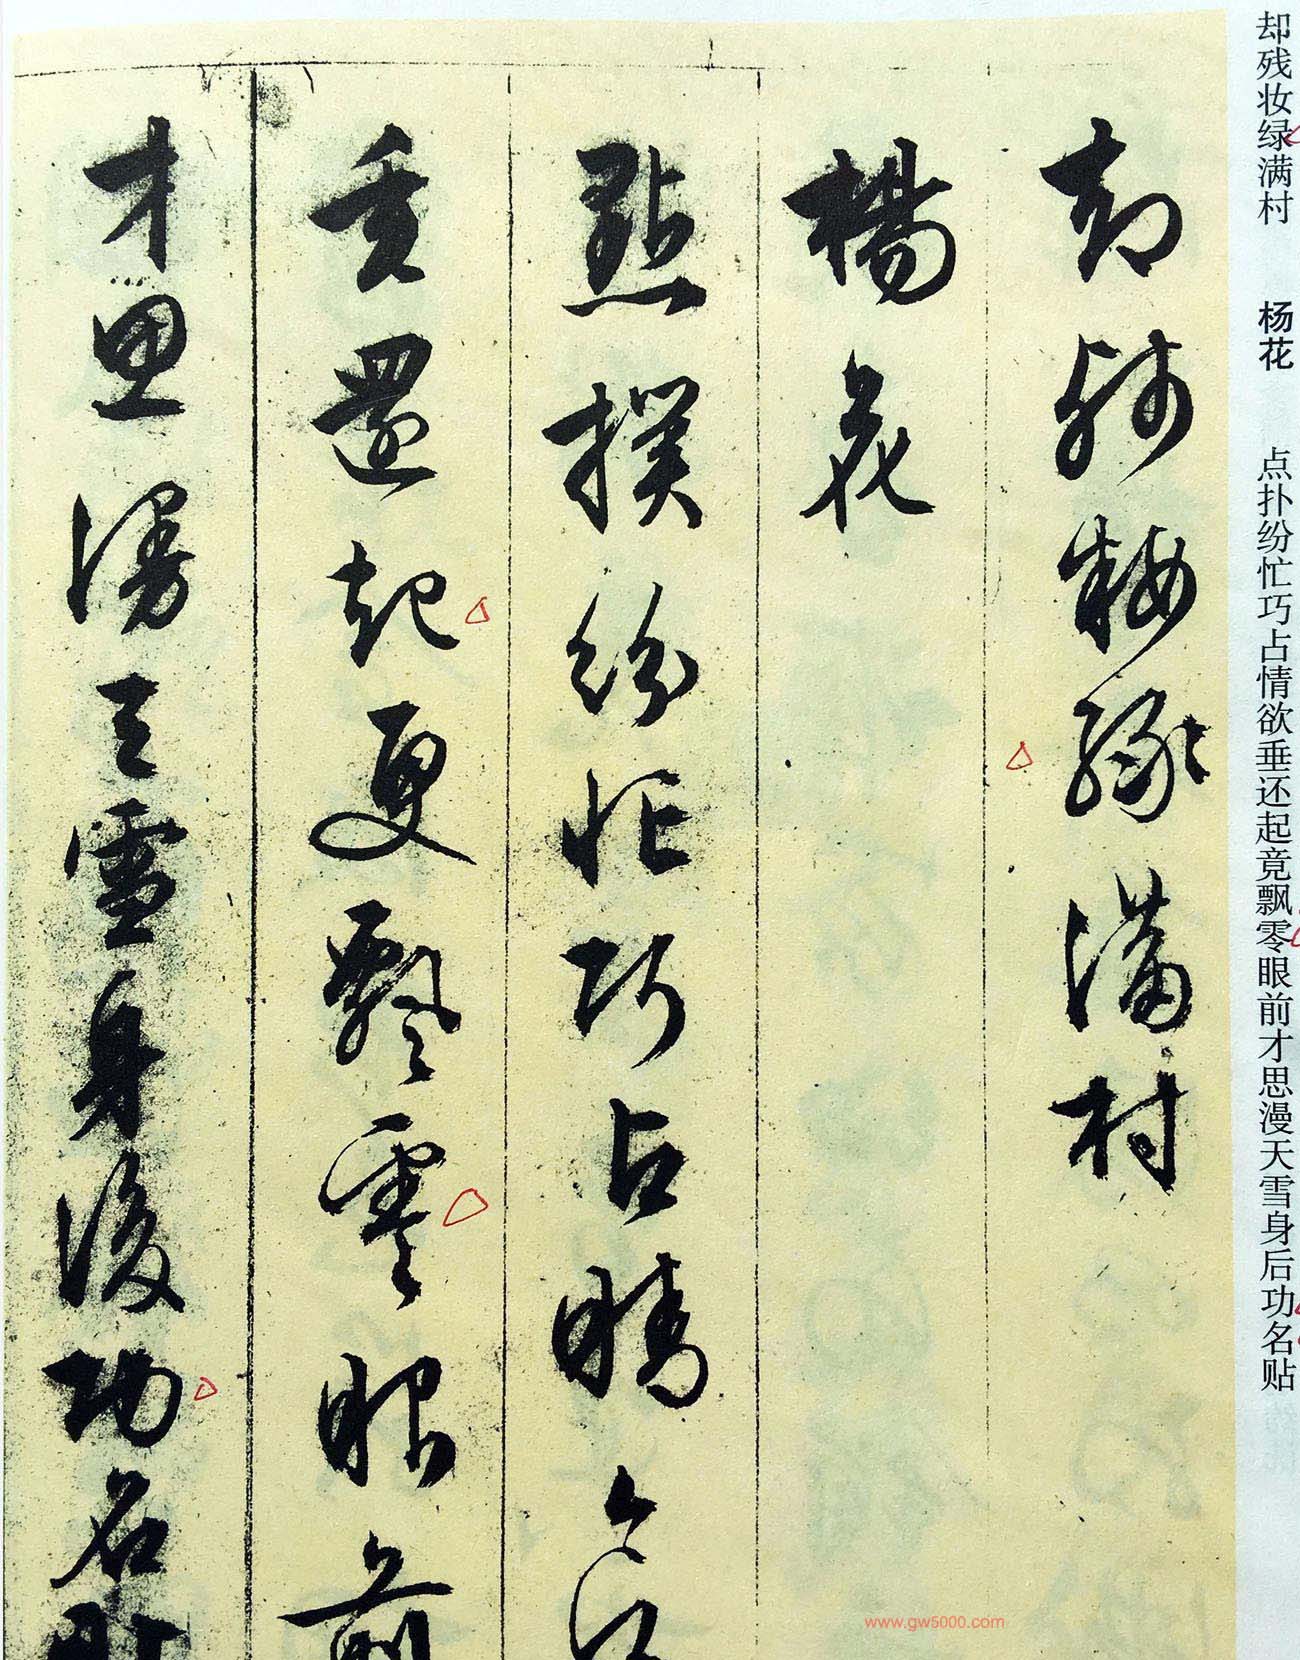 却残妆绿满村 杨花 点扑纷忙巧占情欲垂还起竟飘零眼前才思漫天雪身后功名贴
却殘粧綠滿村
楊花
點撲紛忙巧占晴
垂還起更飄零眼前
才思漫天雪身後功名
www.gw5000.com